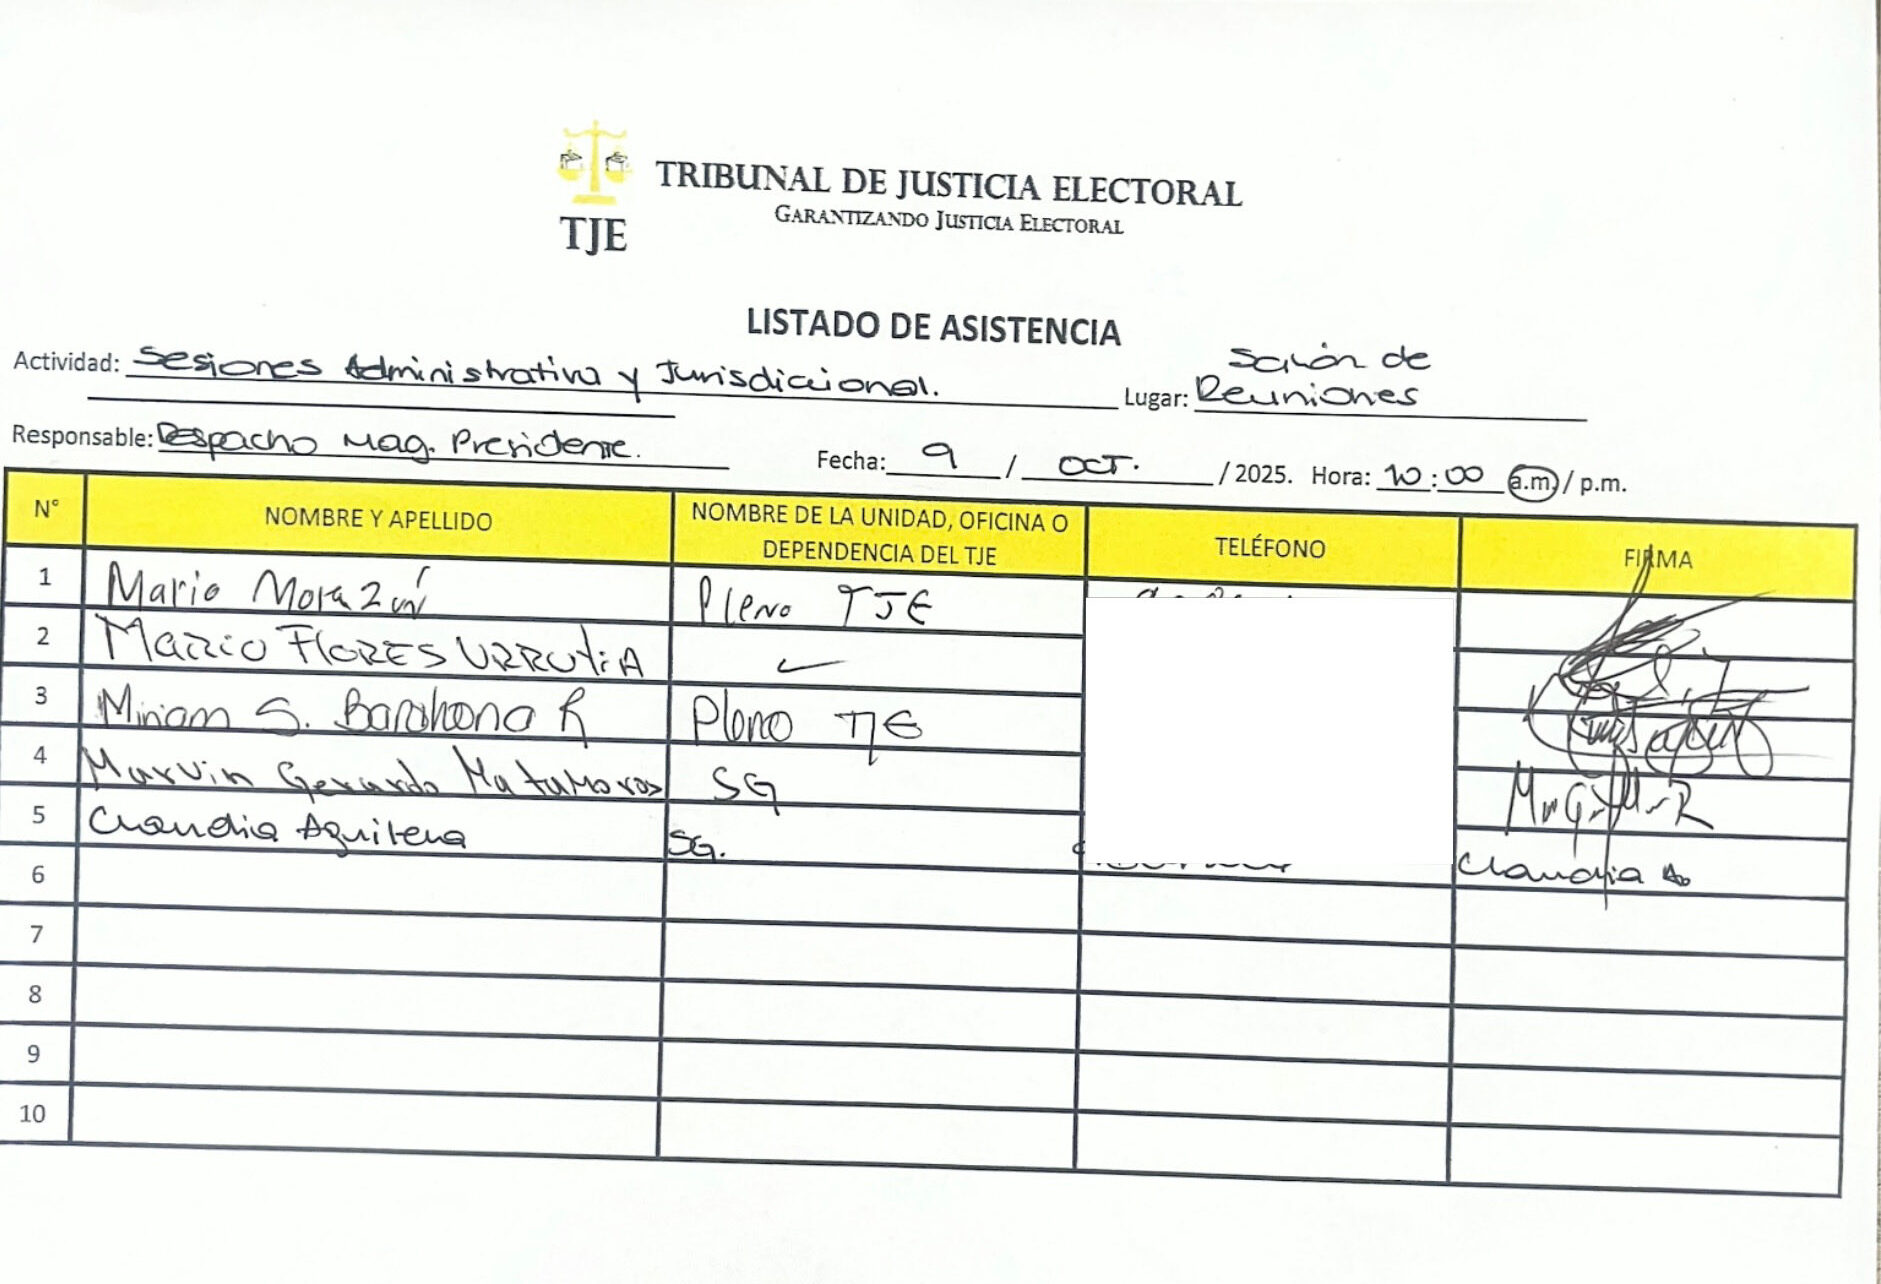 TRIBUNAL DE JUSTICIA ELECTORAL
GARANTIZANDO JUSTICIA ELECTORAL
TJE
LISTADO DE ASISTENCIA
Actividad: Sesiones Administrativa y Jurisdiccional. Lugar: Salón de Reuniones
Responsable: Despacho Mag. Presidente. Fecha: 9 / OCT. / 2025. Hora: 10:00 a.m / p.m.
N° NOMBRE Y APELLIDO NOMBRE DE LA UNIDAD, OFICINA O DEPENDENCIA DEL TJE TELÉFONO FIRMA
1 Mario Morazán Pleno TJE
2 MARIO FLORES URRUTIA
3 Miriam S. Barahona R Pleno TJE
4 Marvin Gerardo Matamoros SG
5 Claudia Aguilera SG. Claudia A.
6
7
8
9
10